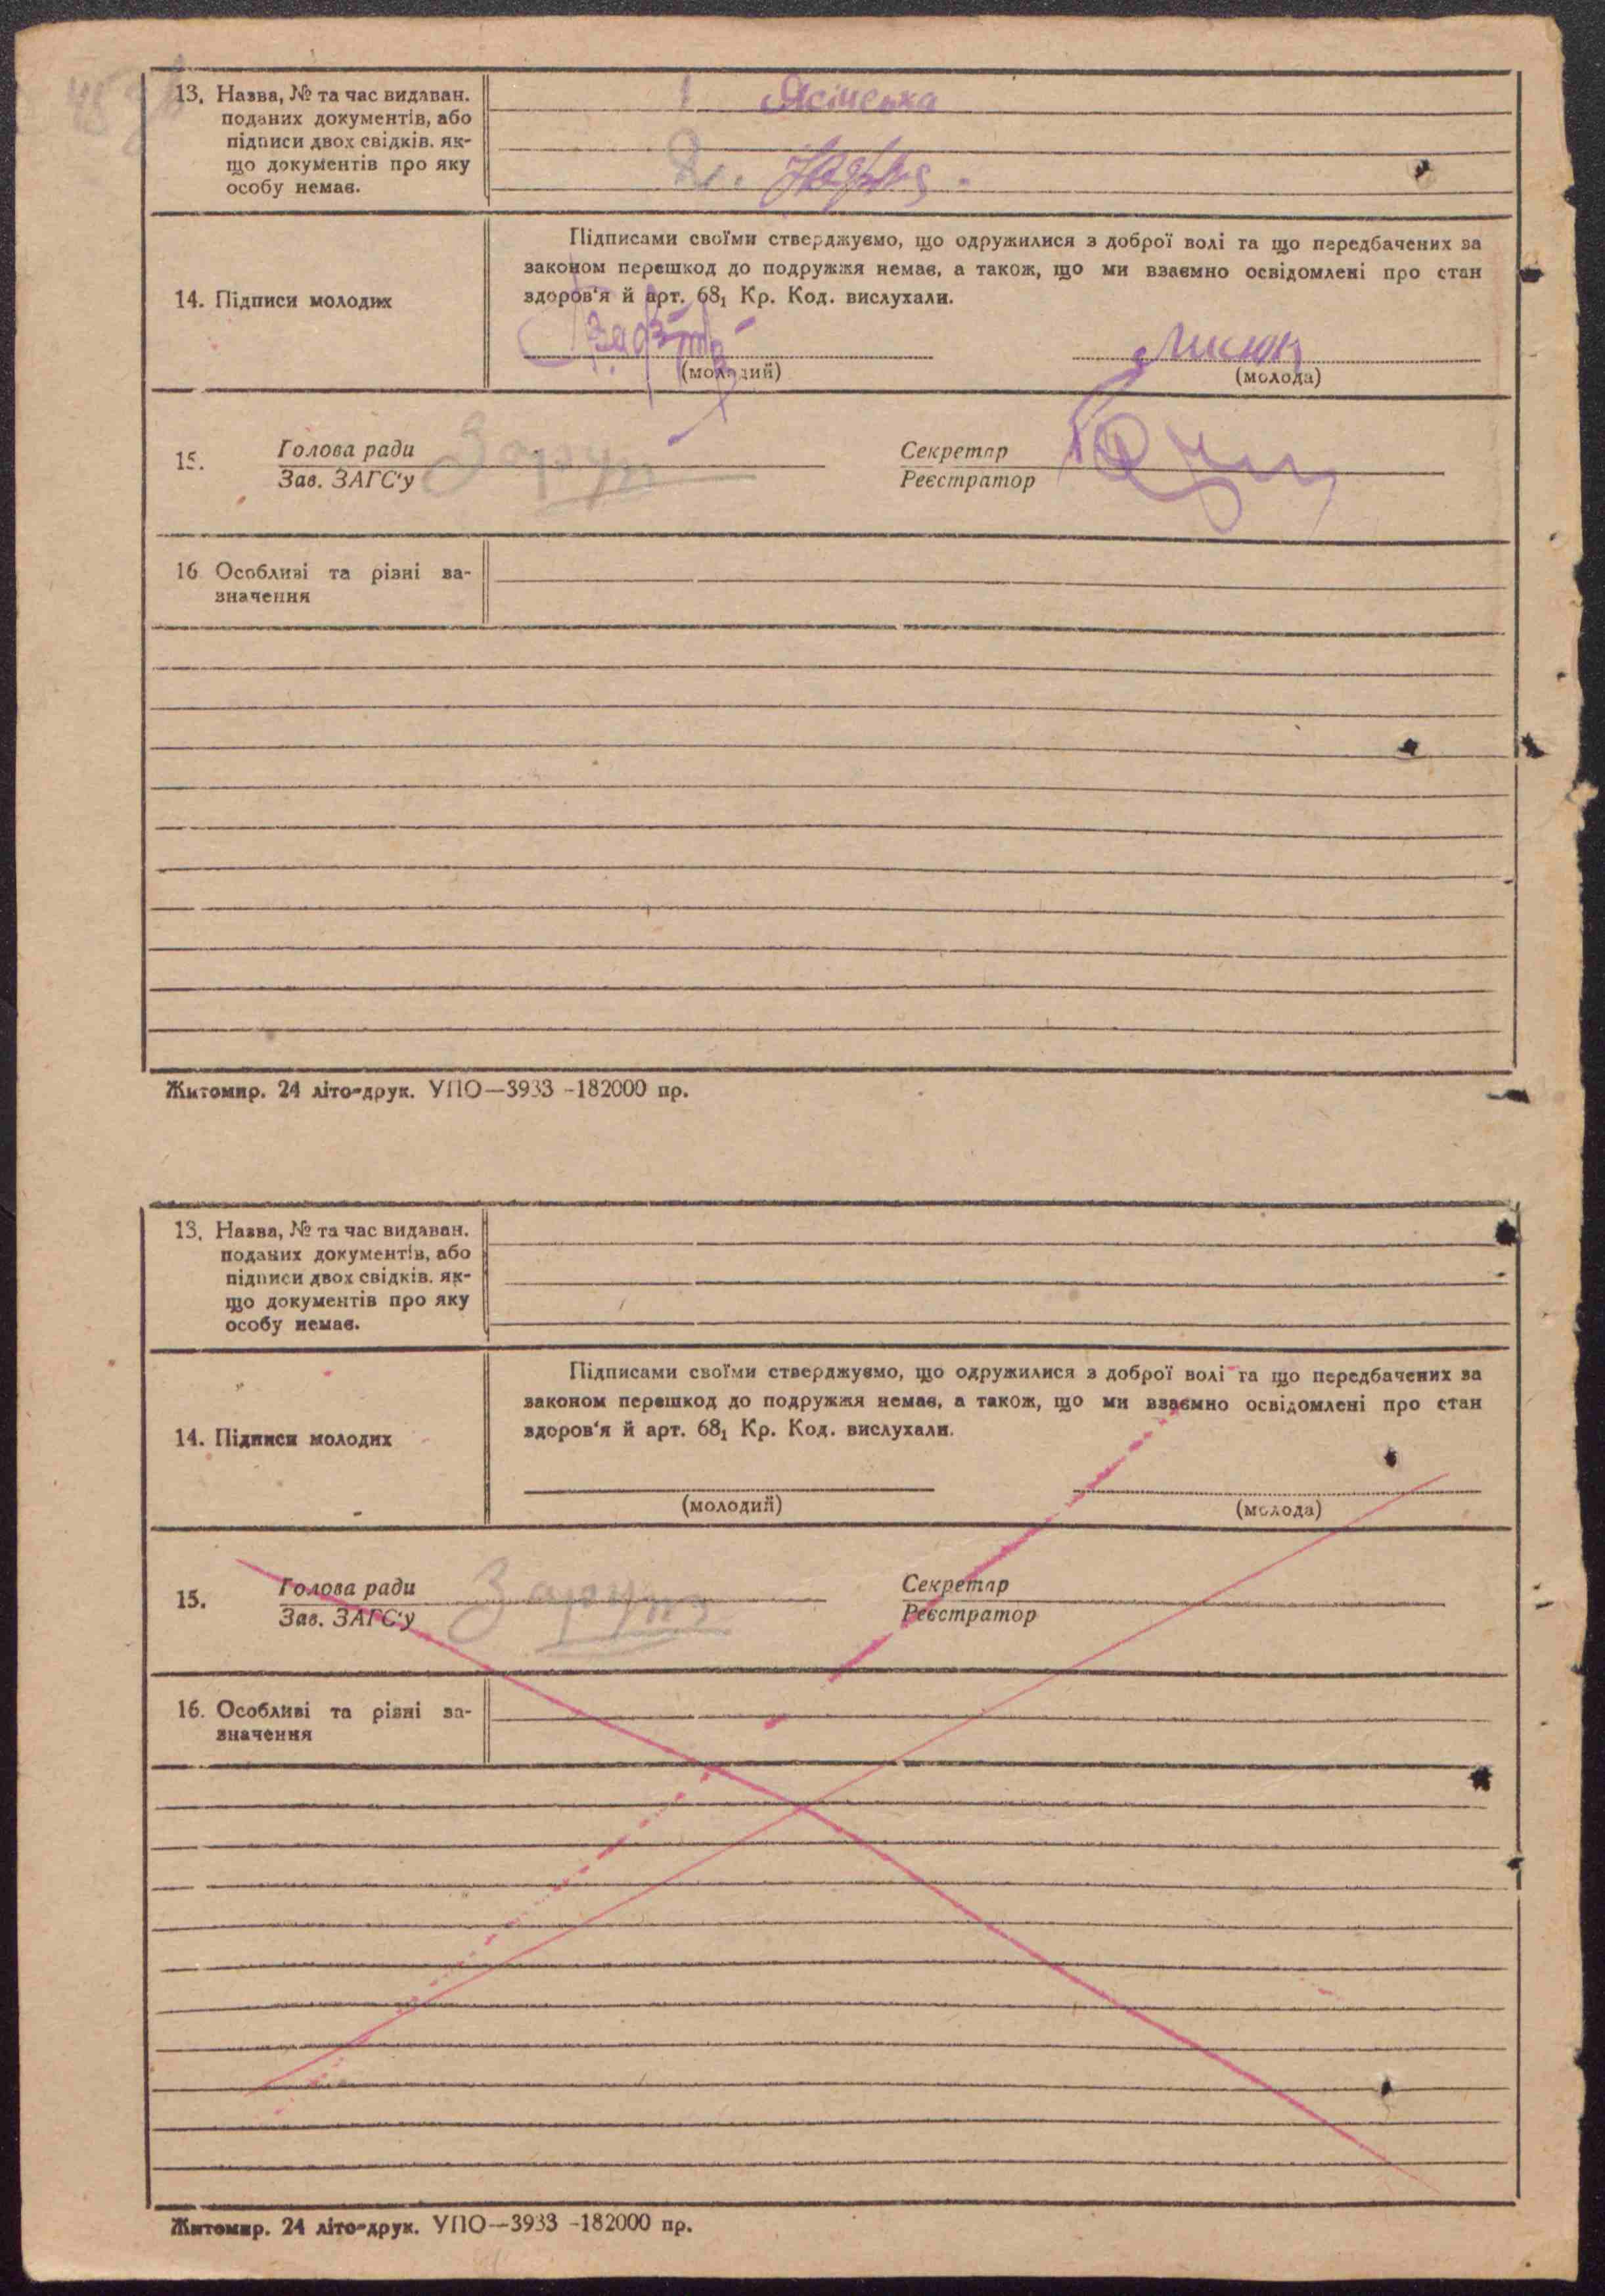 13. Назва, № та час видаван.
поданих документів, або
підписи двох свідків. як-
що документів про яку
особу немає.
1
2.
14. Підписи молодих
Підписами своїми стверджуємо, що одружилися з доброї волі та що передбачених за
законом перешкод до подружжя немає, а також, що ми взаємно освідомлені про стан
здоров'я й арт. 68₁ Кр. Код. вислухали.
(молодий)
(молода)
15.
Голова ради
Зав. ЗАГС'у
Секретар
Реєстратор
16 Особливі та різні за-
значення
Житомир. 24 літо-друк. УПО—3933 -182000 пр.
13. Назва, № та час видаван.
поданих документів, або
підписи двох свідків. як-
що документів про яку
особу немає.
14. Підписи молодих
Підписами своїми стверджуємо, що одружилися з доброї волі та що передбачених за
законом перешкод до подружжя немає, а також, що ми взаємно освідомлені про стан
здоров'я й арт. 68₁ Кр. Код. вислухали.
(молодий)
(молода)
15.
Голова ради
Зав. ЗАГС'у
Секретар
Реєстратор
16. Особливі та різні за-
значення
Житомир. 24 літо-друк. УПО—3933 -182000 пр.